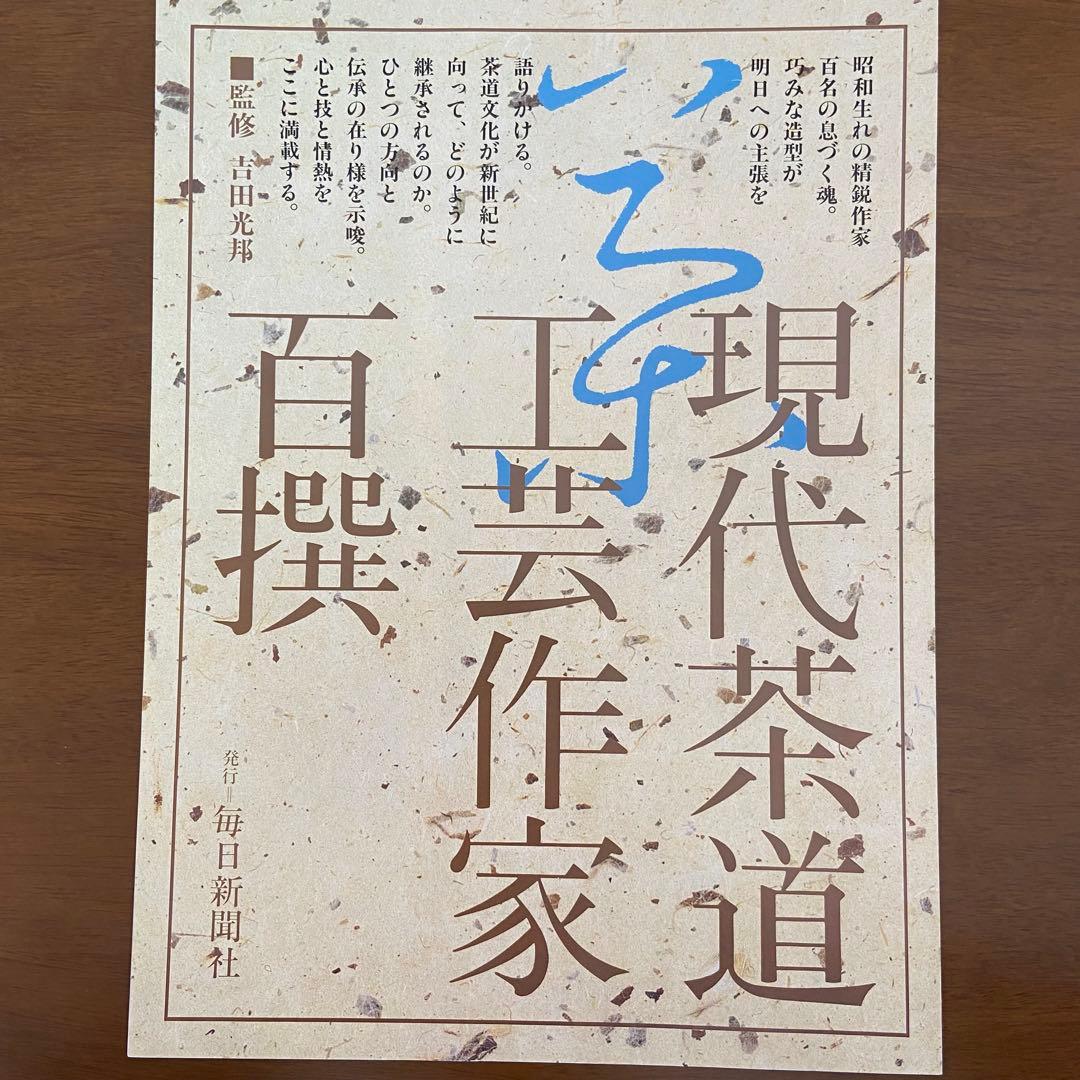 昭和生れの精鋭作家
百名の息づく魂。
巧みな造型が
明日への主張を
語りかける。
茶道文化が新世紀に
向って、どのように
継承されるのか。
ひとつの方向と
伝承の在り様を示唆。
心と技と情熱を
ここに満載する。
■監修 吉田光邦
現代茶道
工芸作家
百撰
発行=毎日新聞社